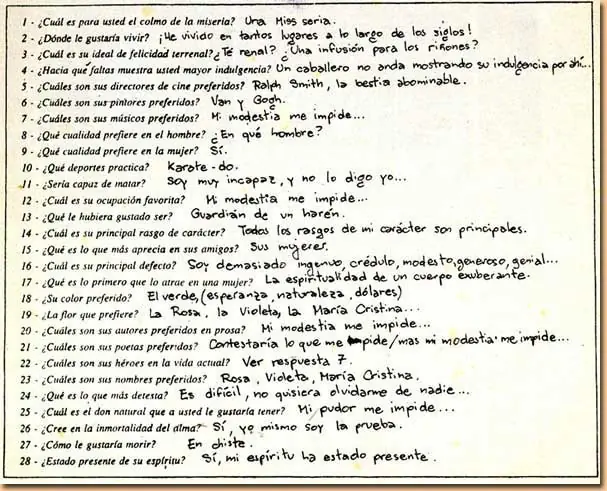 1 - ¿Cuál es para usted el colmo de la miseria? Una Miss seria.
2 - ¿Dónde le gustaría vivir? ¡He vivido en tantos lugares a lo largo de los siglos!
3 - ¿Cuál es su ideal de felicidad terrenal? ¿Té renal? ¿Una infusión para los riñones?
4 - ¿Hacia qué faltas muestra usted mayor indulgencia? Un caballero no anda mostrando su indulgencia por ahí...
5 - ¿Cuáles son sus directores de cine preferidos? Ralph Smith, la bestia abominable.
6 - ¿Cuáles son sus pintores preferidos? Van y Gogh.
7 - ¿Cuáles son sus músicos preferidos? Mi modestia me impide...
8 - ¿Qué cualidad prefiere en el hombre? ¿En qué hombre?
9 - ¿Qué cualidad prefiere en la mujer? Sí.
10 - ¿Qué deportes practica? Karate-do.
11 - ¿Sería capaz de matar? Soy muy incapaz, y no lo digo yo...
12 - ¿Cuál es su ocupación favorita? Mi modestia me impide...
13 - ¿Qué le hubiera gustado ser? Guardián de un harén.
14 - ¿Cuál es su principal rasgo de carácter? Todos los rasgos de mi carácter son principales.
15 - ¿Qué es lo que más aprecia en sus amigos? Sus mujeres.
16 - ¿Cuál es su principal defecto? Soy demasiado ingenuo, crédulo, modesto, generoso, genial...
17 - ¿Qué es lo primero que lo atrae en una mujer? La espiritualidad de un cuerpo exuberante.
18 - ¿Su color preferido? El verde, (esperanza, naturaleza, dólares)
19 - ¿La flor que prefiere? La Rosa, la Violeta, la María Cristina...
20 - ¿Cuáles son sus autores preferidos en prosa? Mi modestia me impide...
21 - ¿Cuáles son sus poetas preferidos? Contestaría lo que me impide/mas mi modestia me impide...
22 - ¿Cuáles son sus héroes en la vida actual? Ver respuesta 7.
23 - ¿Cuáles son sus nombres preferidos? Rosa, Violeta, María Cristina.
24 - ¿Qué es lo que más detesta? Es difícil, no quisiera olvidarme de nadie...
25 - ¿Cuál es el don natural que a usted le gustaría tener? Mi pudor me impide...
26 - ¿Cree en la inmortalidad del alma? Sí, yo mismo soy la prueba.
27 - ¿Cómo le gustaría morir? En chiste.
28 - ¿Estado presente de su espíritu? Sí, mi espíritu ha estado presente.